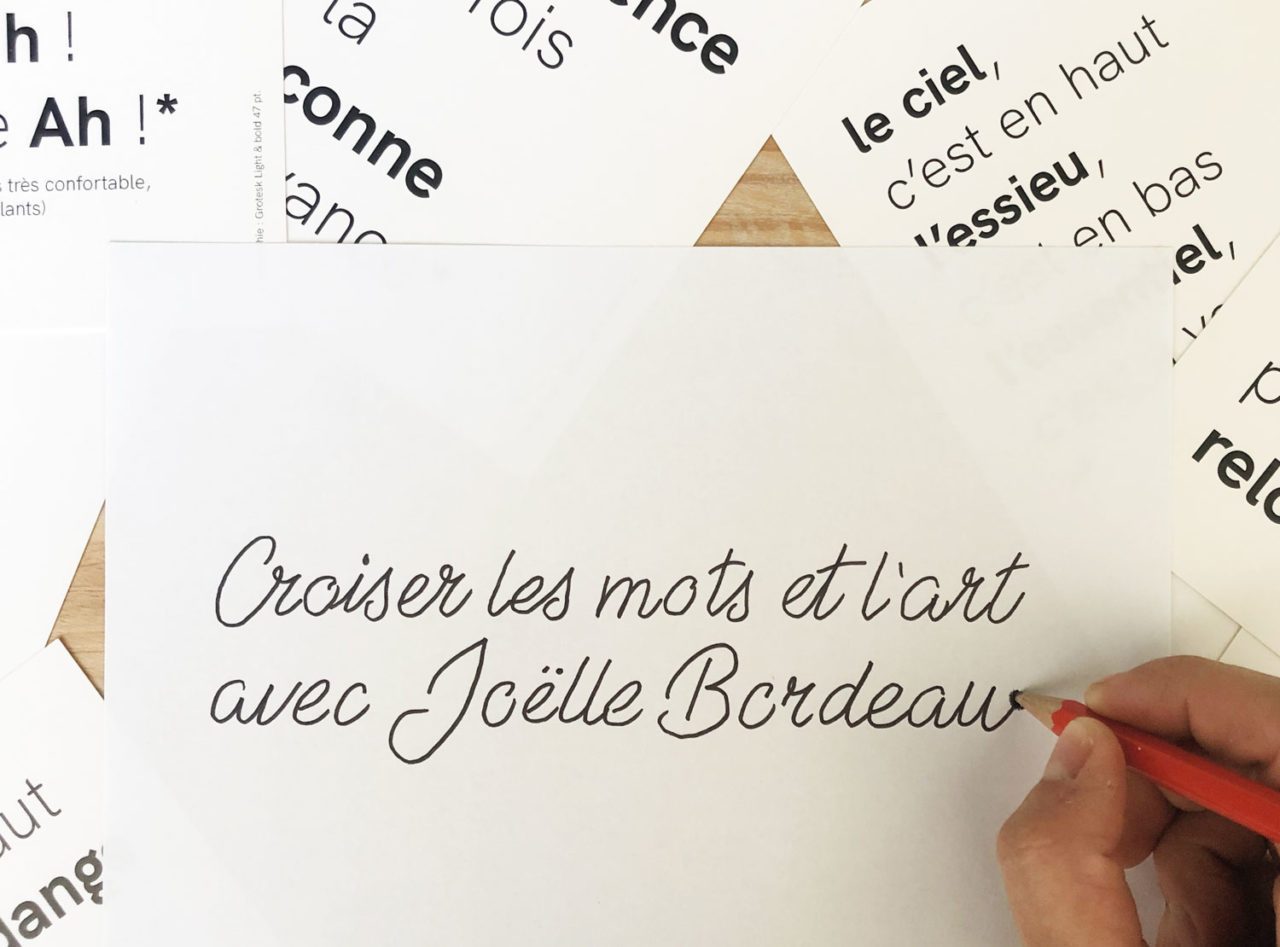 h !
e Ah !*
s très confortable,
lants)
hie : Grotesk Light & bold 47 pt.
la
fois
ence
conne
le ciel,
c'est en haut
l'essieu,
en bas
iel,
p
relo
Croiser les mots et l'art
avec Joëlle Bordeau
aut
dang